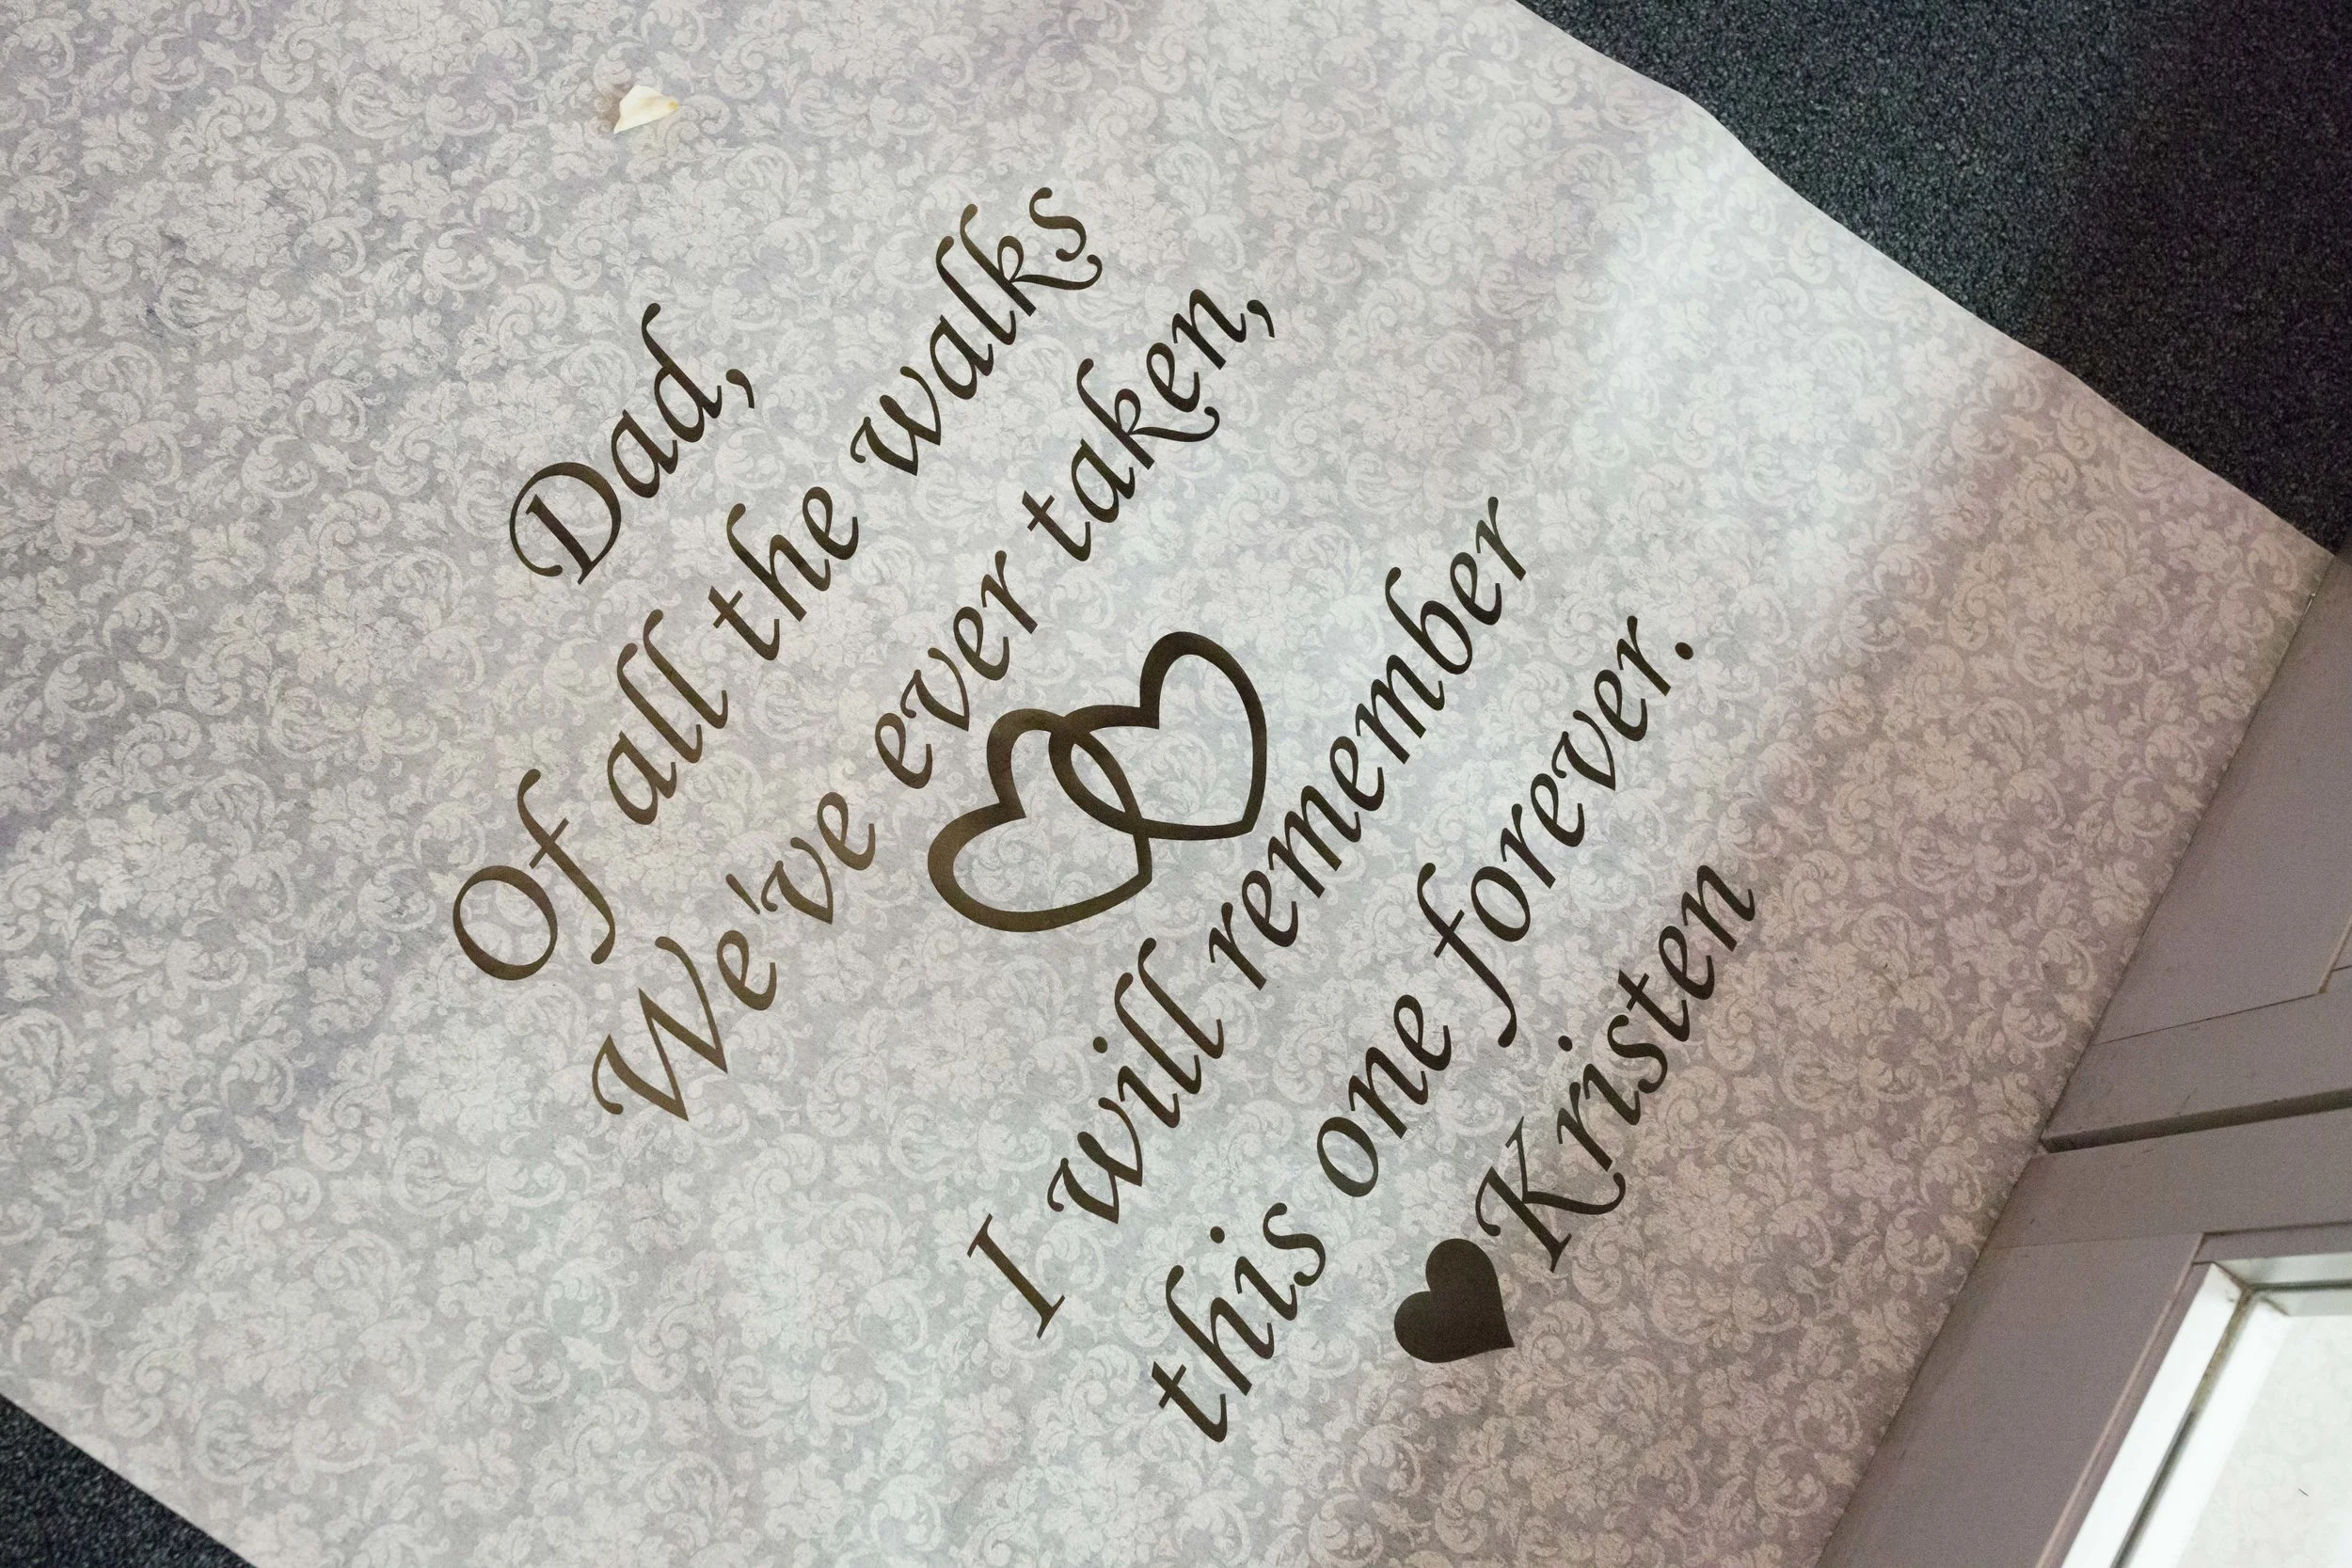 Dad,
Of all the walks
We've ever taken,
I will remember
this one forever.
Kristen